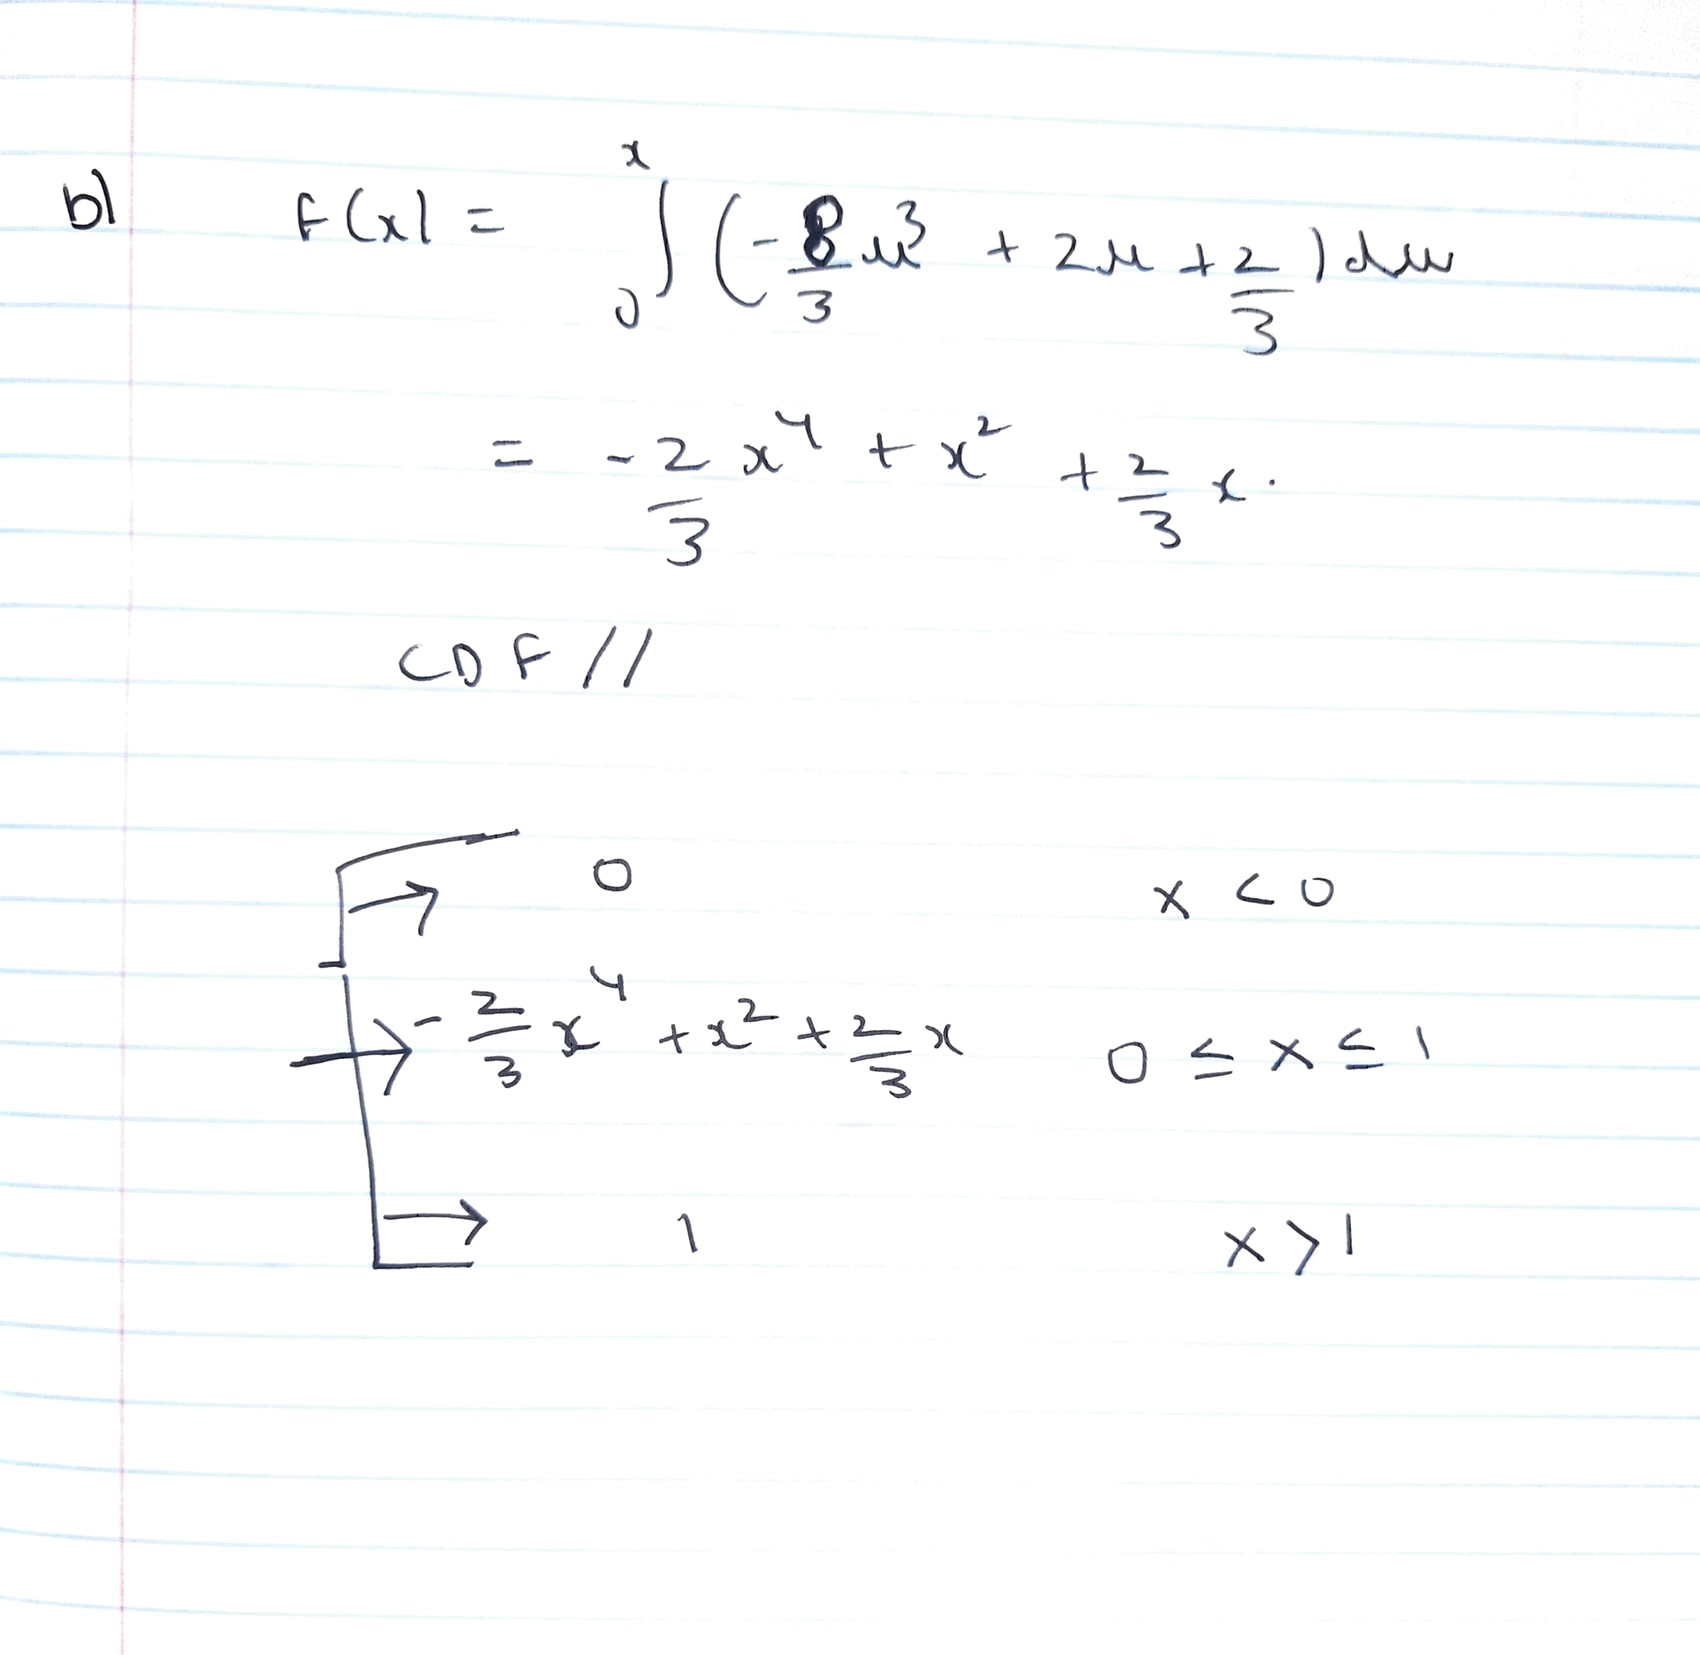 b) F(x) = ∫₀ˣ (-8/3 u³ + 2u + 2/3) du
= -2/3 x⁴ + x² + 2/3 x.
CDF //
→ 0 x < 0
→ -2/3 x⁴ + x² + 2/3 x 0 ≤ x ≤ 1
→ 1 x > 1